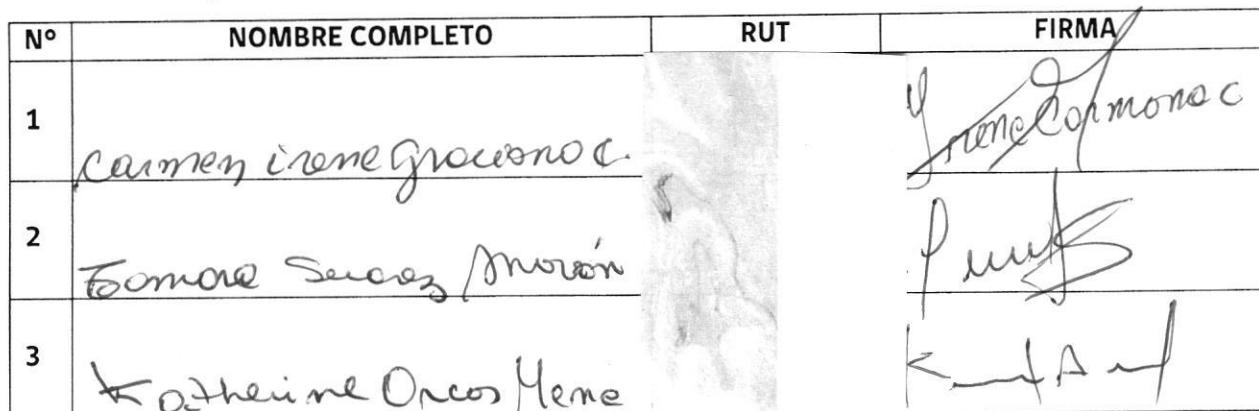 Nº NOMBRE COMPLETO RUT FIRMA
1 Carmen irene Graciano C. Irene Carmona C
2 Morón
3 Katherine Orcos Mene